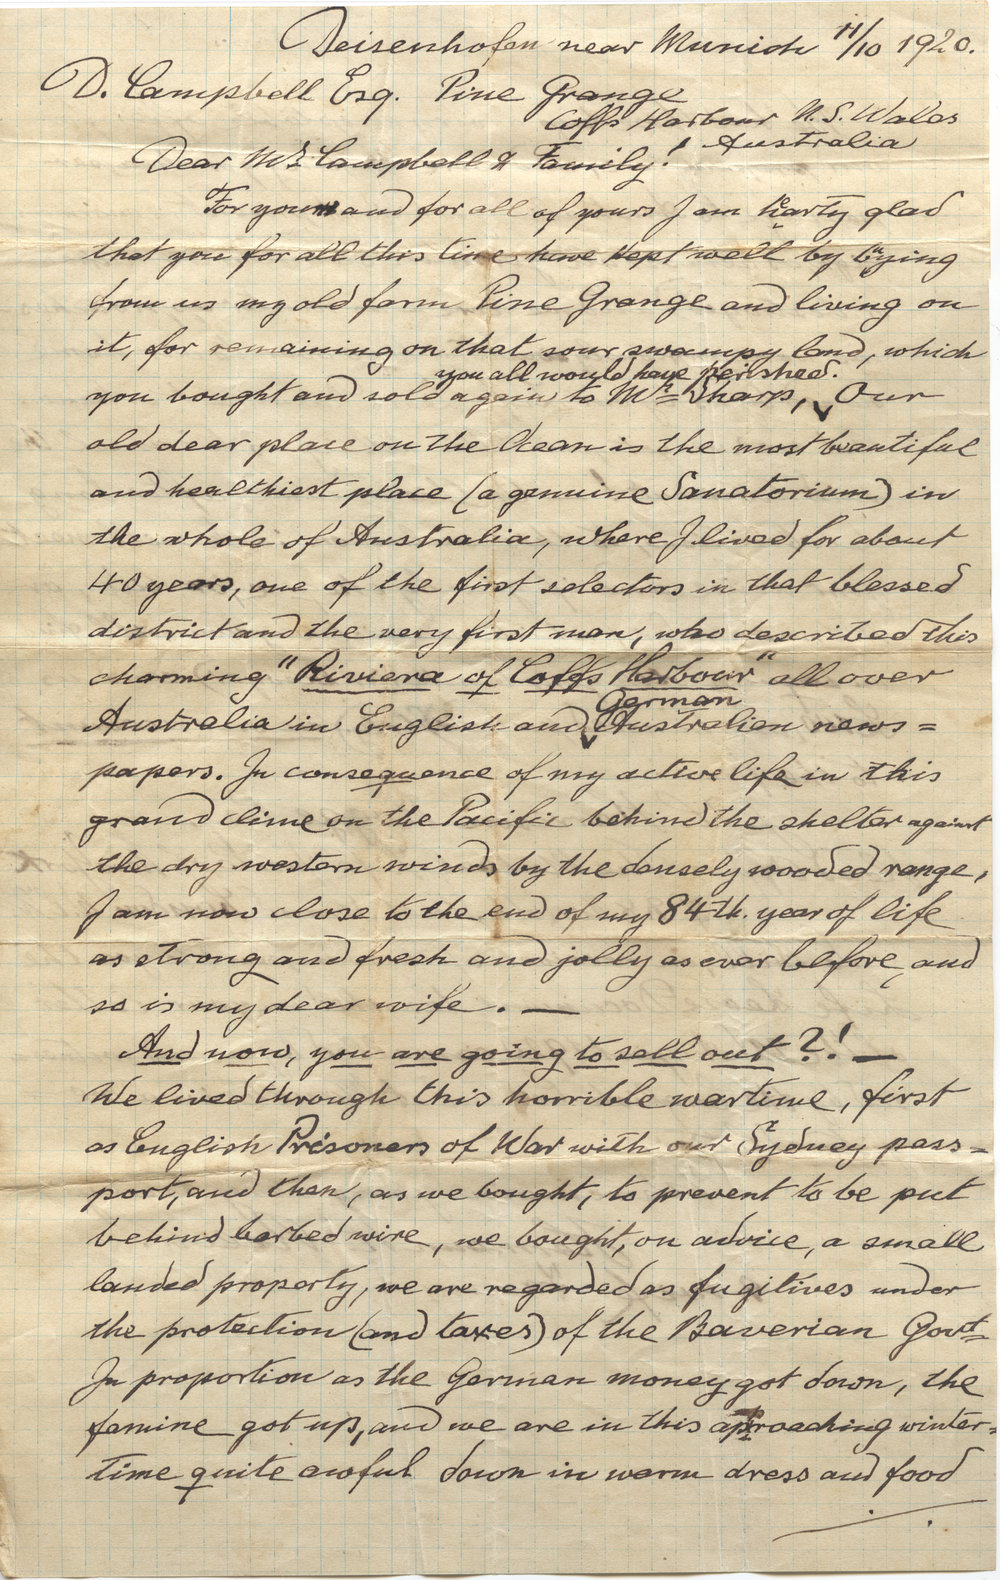 Deisenhofen near Munich 11/10 1920.
D. Campbell Esq. Pine Grange
Coffs Harbour N. S. Wales
Australia
Dear Mr. Campbell & Family!
For you and for all of yours I am harty glad
that you for all this time have kept well by bying
from us my old farm Pine Grange and living on
it, for remaining on that sour swampy land, which
you all would have perished.
you bought and sold again to Mr. Sharp, Our
old dear place on the Ocean is the most beautiful
and healthiest place (a genuine Sanatorium) in
the whole of Australia, where I lived for about
40 years, one of the first selectors in that blessed
district and the very first man, who described this
charming "Riviera of Coffs Harbour" all over
German
Australia in English and Australian news=
papers. In consequence of my active life in this
grand clime on the Pacific behind the shelter against
the dry western winds by the densely wooded range,
I am now close to the end of my 84th. year of life
as strong and fresh and jolly as ever before, and
so is my dear wife. —
And now, you are going to sell out?! —
We lived through this horrible wartime, first
as English Prisoners of War with our Sydney pass=
port, and then, as we bought, to prevent to be put
behind barbed wire, we bought, on advice, a small
landed property, we are regarded as fugitives under
the protection (and taxes) of the Bavarian Govt=
In proportion as the German money got down, the
famine got up, and we are in this approaching winter=
time quite awful down in warm dress and food